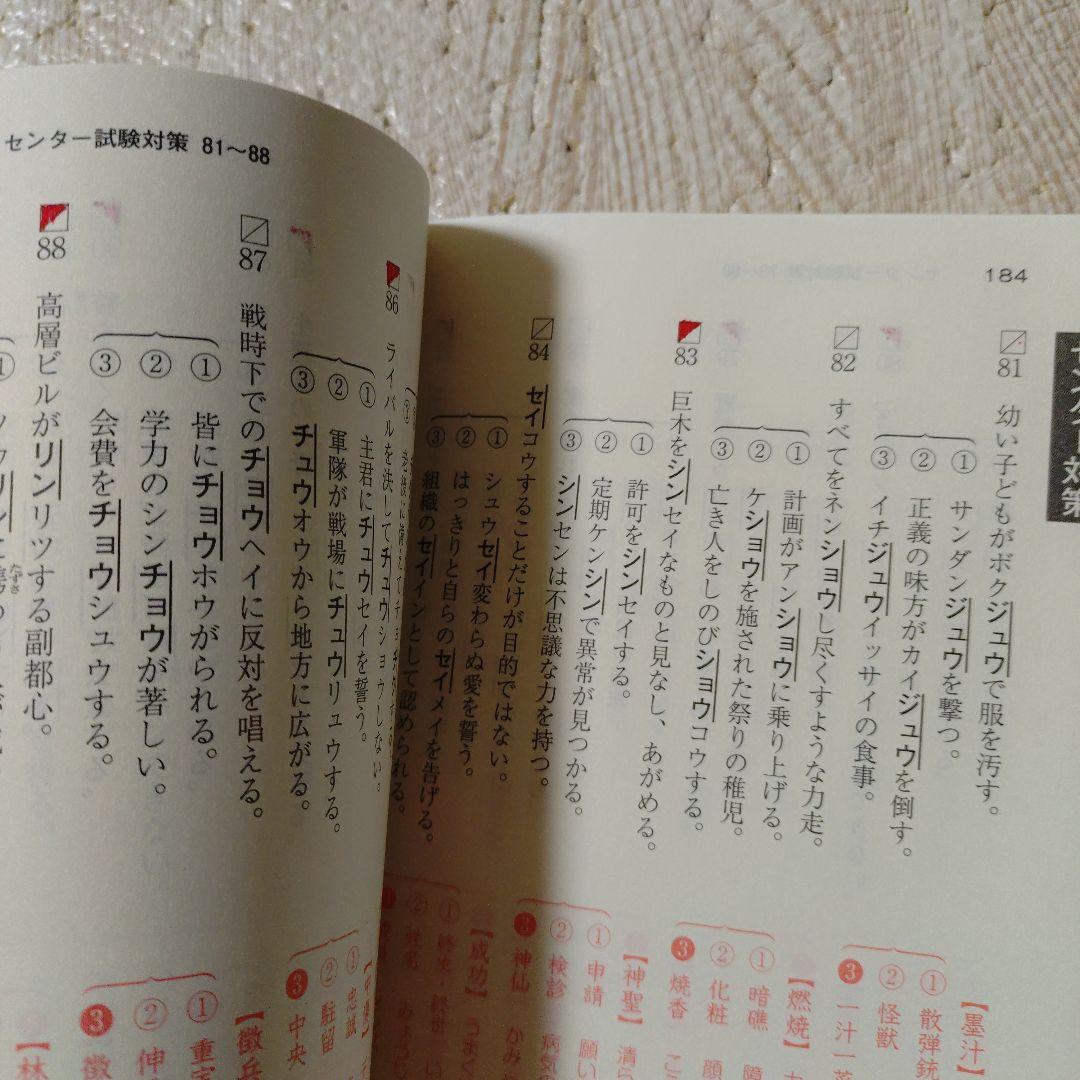 184
81 幼い子どもがボクジュウで服を汚す。
① サンダンジュウを撃つ。
② 正義の味方がカイジュウを倒す。
③ イチジュウイッサイの食事。
82 すべてをネンショウし尽くすような力走。
① 計画がアンショウに乗り上げる。
② ケショウを施された祭りの稚児。
③ 亡き人をしのびショウコウする。
83 巨木をシンセイなものと見なし、あがめる。
① 許可をシンセイする。
② 定期ケンシンで異常が見つかる。
③ シンセンは不思議な力を持つ。
84 セイコウすることだけが目的ではない。
① シュウセイ変わらぬ愛を誓う。
② はっきりと自らのセイメイを告げる。
③ 組織のセイインとして認められる。
【墨汁】
① 散弾銃
② 怪獣
❸ 一汁一菜
【燃焼】
① 暗礁
② 化粧 顔
❸ 焼香
【神聖】 清ら
① 申請 願い
② 検診 病気の
❸ 神仙 かみ
【成功】 うまく
① 終生・終世
② 姓名
センター試験対策 81～88
86 ライバルを決してチュウショウしない。
① 主君にチュウセイを誓う。
② 軍隊が戦場にチュウリュウする。
③ チュウオウから地方に広がる。
87 戦時下でのチョウヘイに反対を唱える。
① 皆にチョウホウがられる。
② 学力のシンチョウが著しい。
③ 会費をチョウシュウする。
88 高層ビルがリンリツする副都心。
① 忠誠
② 駐留
❸ 中央
【徴兵
① 重宝
② 伸
❸ 徴
【林